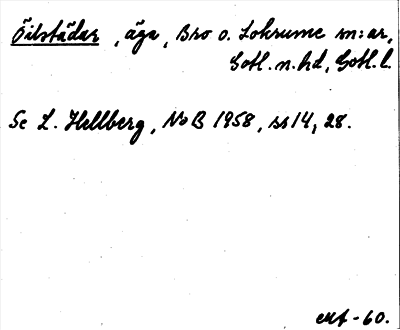 Öilstädar, äga, Bro o. Lokrume m:ar,
Gotl. n. hd, Gotl. l.
Se L. Hellberg, NoB 1958, ss 14, 28.
-60.